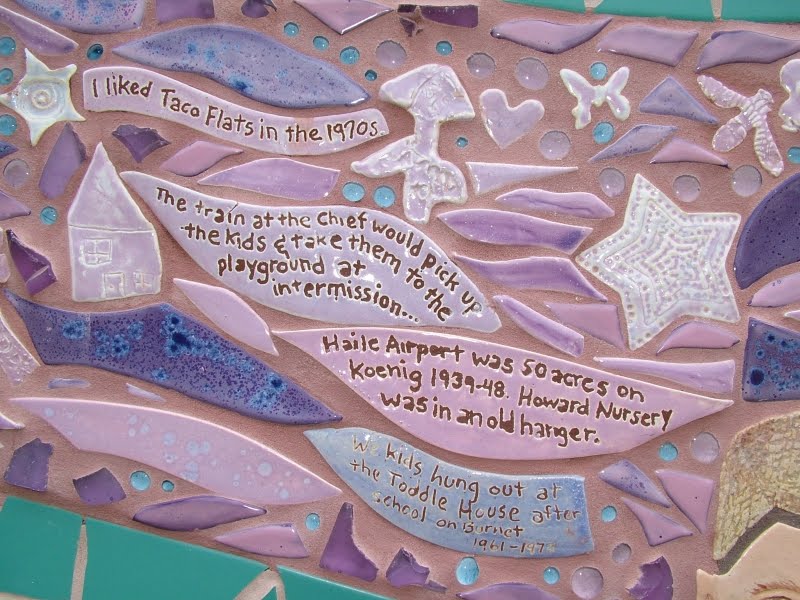 I liked Taco Flats in the 1970s.
The train at the Chief would pick up
the kids & take them to the
playground at
intermission...
Haile Airport was 50 acres on
Koenig 1939-48. Howard Nursery
was in an old hanger.
We kids hung out at
the Toddle House after
school on Burnet
1961-197